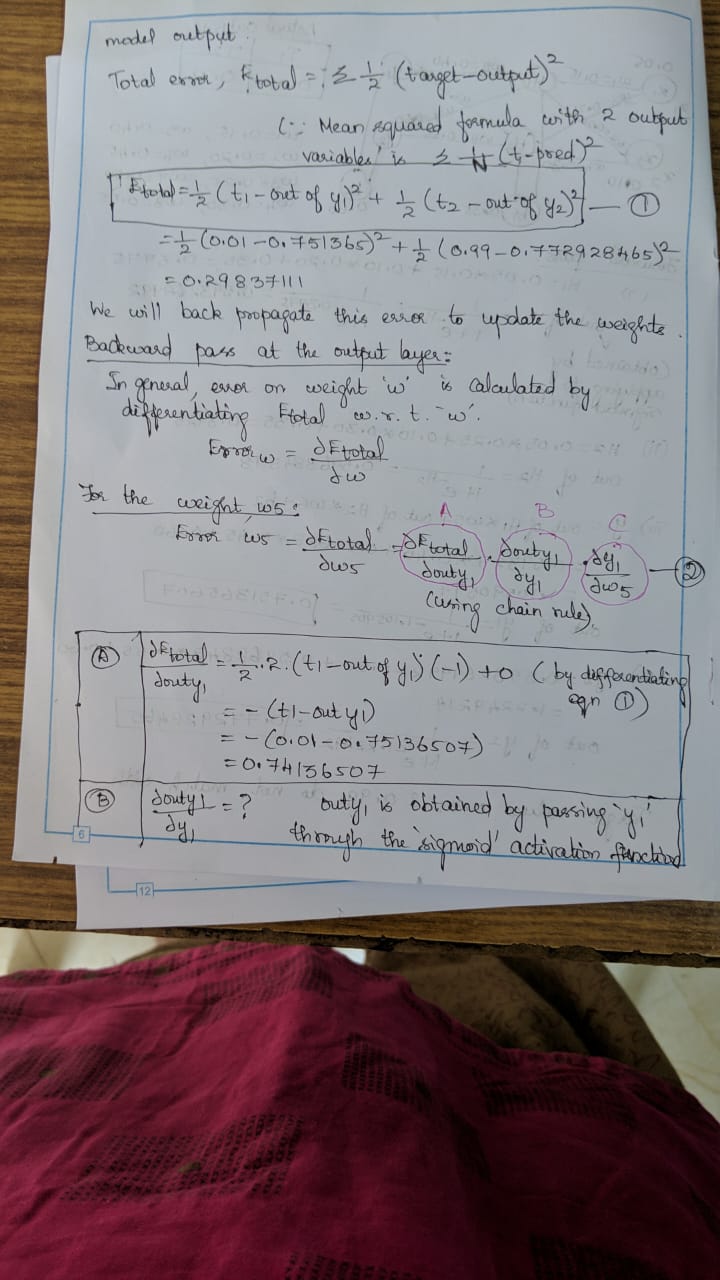 model output.
Total error, Etotal = Σ 1/2 (target-output)²
(∵ Mean squared formula with 2 output
variables is Σ 1/N (t-pred)²
Etotal = 1/2 (t1 - out of y1)² + 1/2 (t2 - out of y2)² — ①
= 1/2 (0.01 - 0.751365)² + 1/2 (0.99 - 0.772928465)²
= 0.29837111
We will back propagate this error to update the weights.
Backward pass at the output layer:
In general, error on weight 'w' is calculated by
differentiating Etotal w.r.t. 'w'.
Error w = ∂Etotal/∂w
For the weight, w5:
A B C
Error w5 = ∂Etotal/∂w5 = ∂Etotal/∂outy1 · ∂outy1/∂y1 · ∂y1/∂w5 — ②
(using chain rule).
Ⓐ ∂Etotal/∂outy1 = 1/2 · 2 · (t1 - out of y1) (-1) + 0 (by differentiating
eqn ①)
= - (t1 - out y1)
= - (0.01 - 0.75136507)
= 0.74136507
Ⓑ ∂outy1/∂y1 = ? outy1 is obtained by passing 'y1'
through the 'sigmoid' activation function
6
12